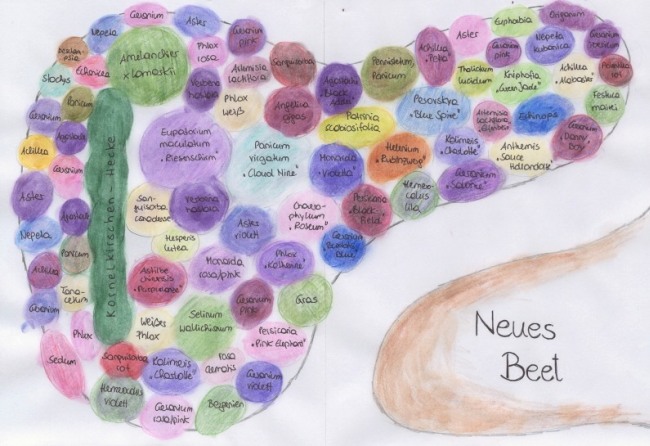 Geranium
Astes
Nepeta
Geranium
pink
Amelanchier
x lamarkii
Phlox
rosa
Echinacea
Stachys
Verbena
hastata
Artemisia
lactiflora
Sanguisorba
Phlox
weiß
Panicum
Geranium
Agastache
Achillea
Geranium
Angelica
gigas
Agastache
"Black
Adder"
Pennisetum
Panicum
Achillea
"Petra"
Aster
Euphorbia
Origanum
Geranium
pink
Nepeta
kubanica
Thalictrum
lucidum
Kniphofia
"Green Jade"
Achillea
"Alabaster"
Persicaria
rot
Festuca
mairei
Patrinia
scabiosifolia
Perovskia
"Blue Spire"
Artemisia
lactiflora
Echinops
Geranium
"Danny
Boy"
Eupatorium
maculatum
"Riesenschirm"
Panicum
virgatum
"Cloud Nine"
Monarda
"Violetta"
Helenium
"Rubinzwerg"
Kalimeris
"Charlotte"
Anthemis
"Sauce
Hollandaise"
Geranium
Astes
Nepeta
Achillea
Geranium
Agastache
Panicum
Tana-
cetum
Kornelkirschen-Hecke
San-
guisorba
canadense
Verbena
hastata
Hesperis
lutea
Astes
violett
Chaero-
phyllum
"Roseum"
Persicaria
"Black
Field"
Hemero-
callis
lila
Astilbe
chinensis
"Purpurlanze"
Monarda
rosa/pink
Phlox
"Katherine"
Geranium
pink
Gras
Weißer
Phlox
Selinum
wallichianum
Persicaria
"Pink Elephant"
Phlox
Sedum
Sanguisorba
rot
Kalimeris
"Charlotte"
rosa
Geranium
violett
Hemerocallis
violett
Geranium
rosa/pink
Bergenien
Neues
Beet